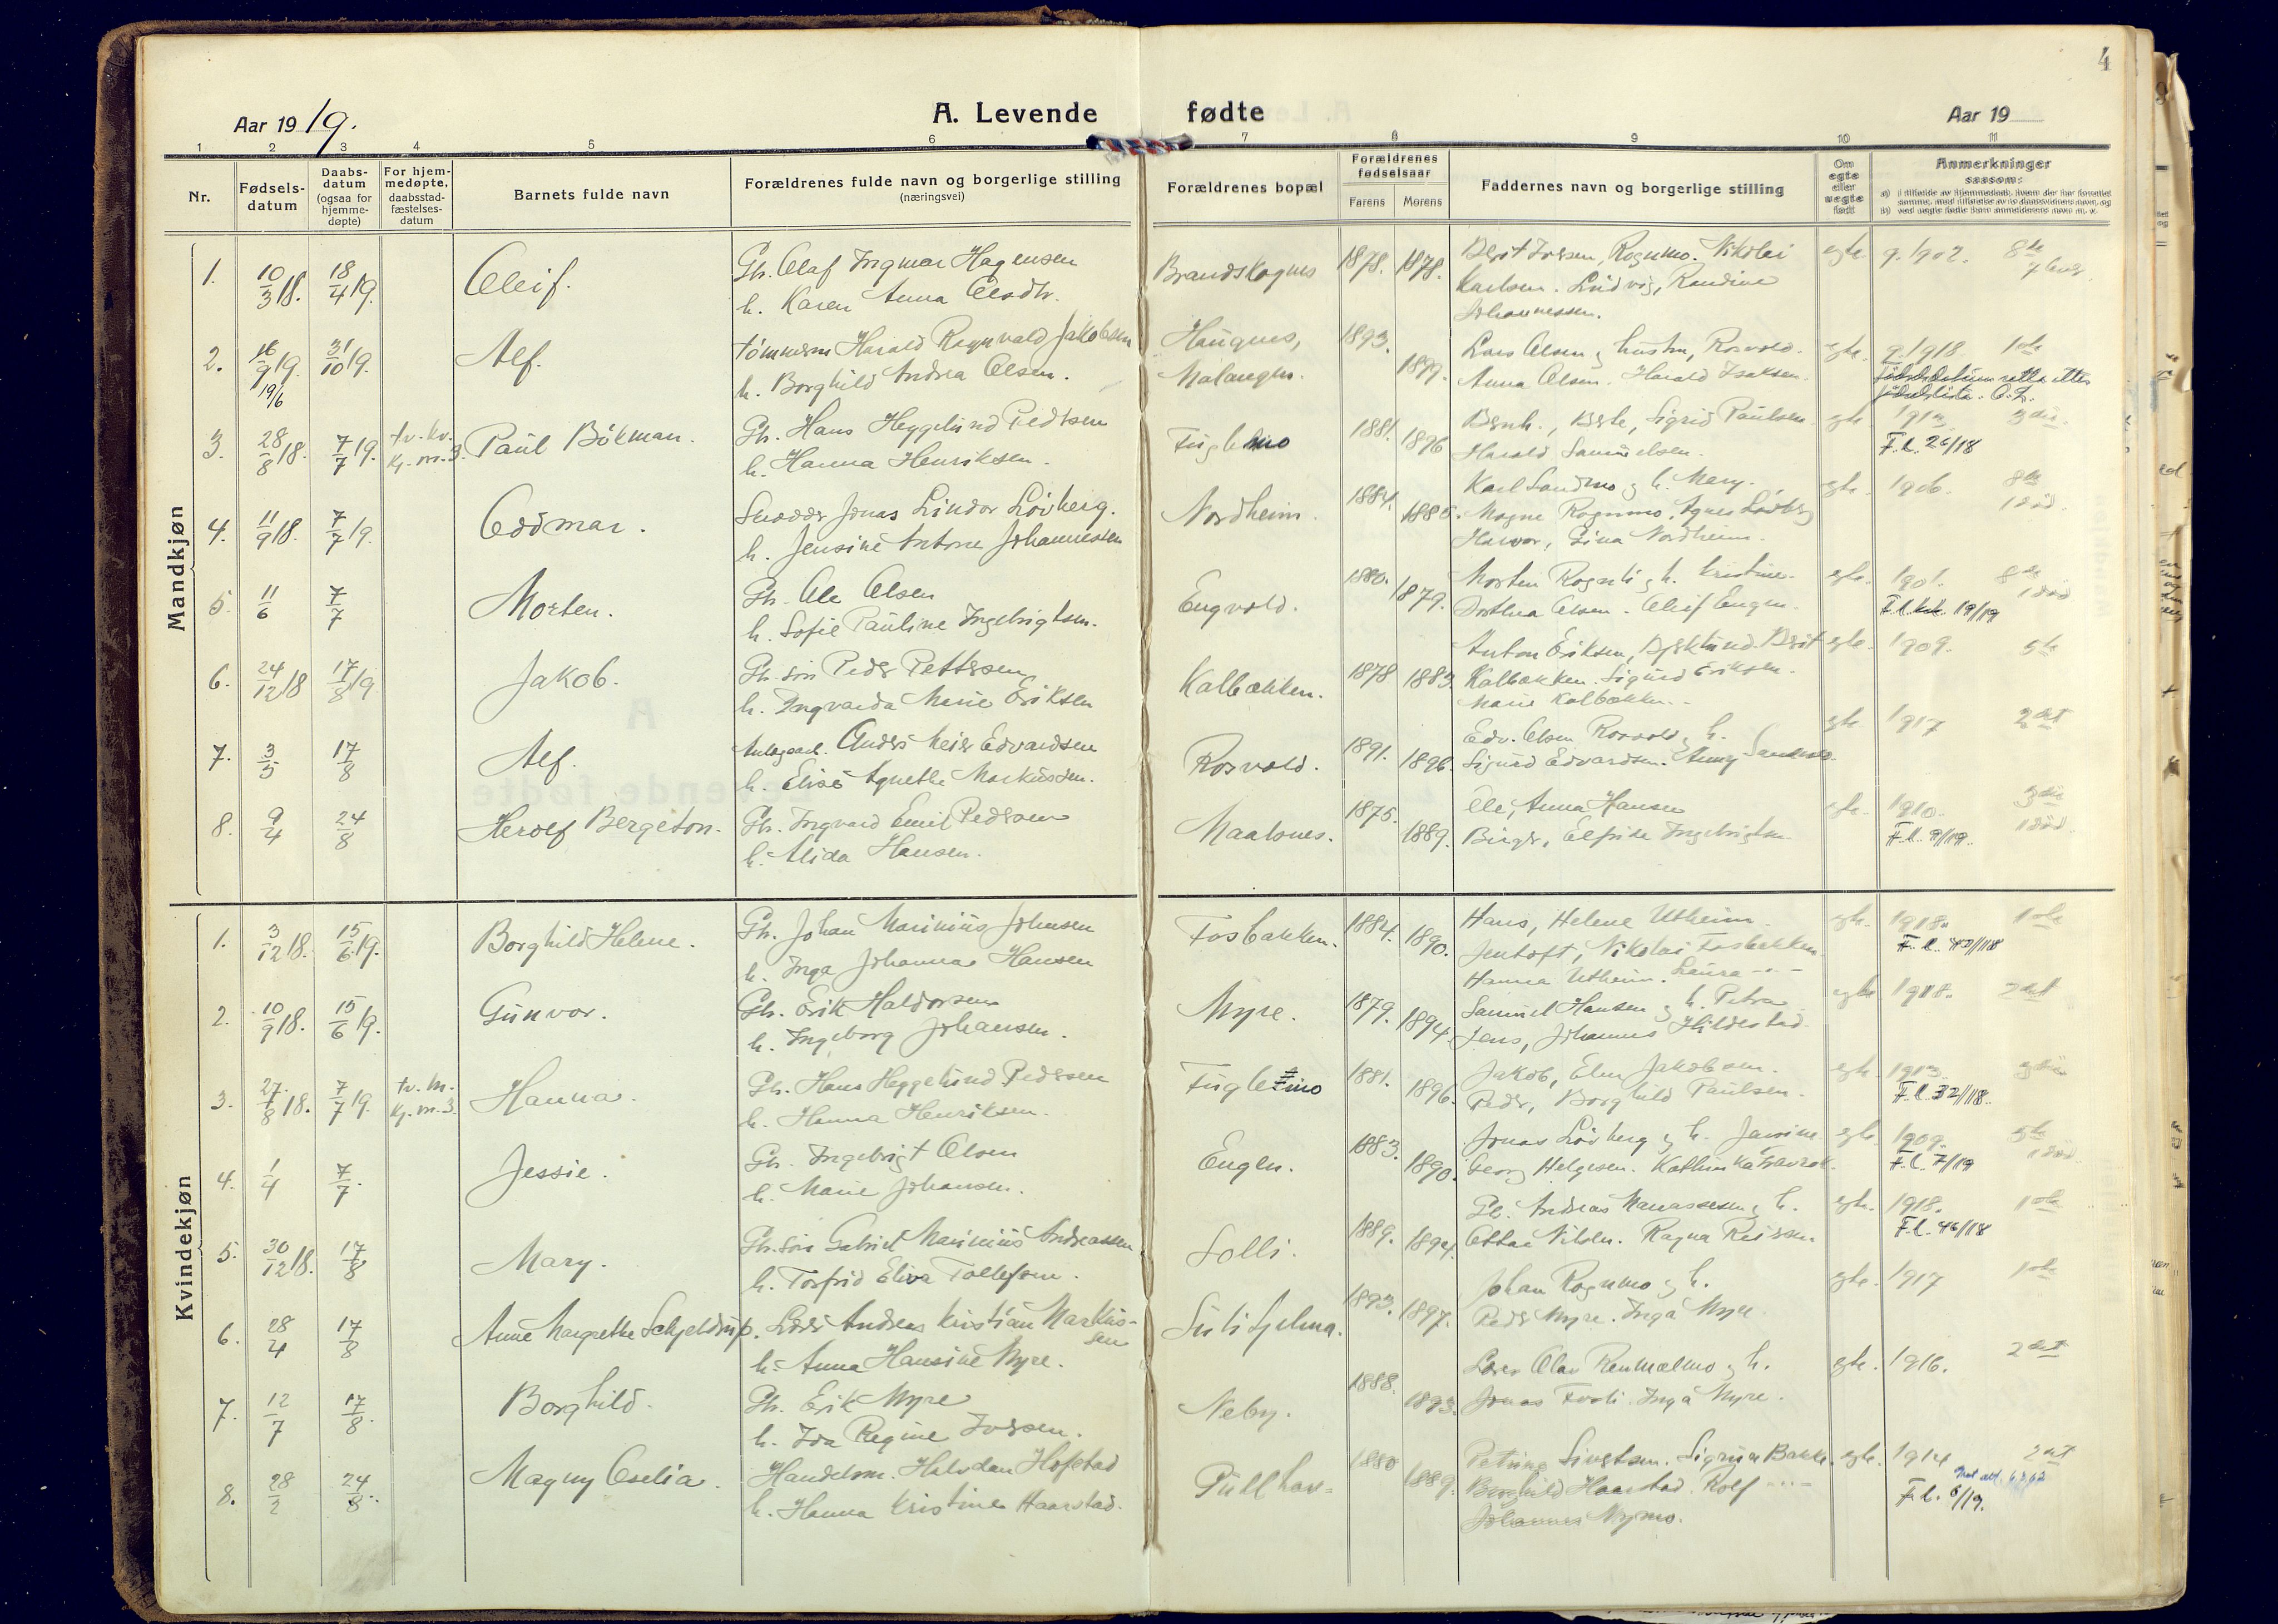 4
Aar 1919.
A. Levende fødte
Aar 19
1 2 3 4 5 6 7 8 9 10 11
Nr.
Fødsels-
datum
Daabs-
datum
(ogsaa for
hjemme-
døpte)
For hjem-
medøpte,
daabsstad-
fæstelses-
datum
Barnets fulde navn
Forældrenes fulde navn og borgerlige stilling
(næringsvei)
Forældrenes bopæl
Forældrenes
fødselsaar
Farens Morens
Faddernes navn og borgerlige stilling
Om
egte
eller
uegte
født
Anmerkninger
saasom:
Mandkjøn
1. 10/3 18. 18/4 19. Oleif. Gb. Olaf Ingmar Hagensen Brandskognes 1878. 1878. Berit Iversen, Rognmo. Nikolai egte. g. 1902. 8de
h. Karen Anna Olsdtr. Karlsen. Ludvig, Randine
Johannessen.
2. 16/9 19. 31/10 19. Alf. tømmerm Harald Ragnvald Jakobsen Haugnes, 1893. Lars Olsen og hustru, Rosvold. egte. g. 1918 1ste
19/6 h. Borghild Andrea Olsen. Malangen. 1899. Anna Olsen. Harald Isaksen.
3. 28/8 18. 7/7 19. tv. kv. Kj. m. 3. Paul Bökman. Gb. Hans Heggelund Pedersen Fuglemo 1881. 1896 Bernh., Berte, Sigrid Paulsen. egte. 1913. 3die.
h. Hanna Henriksen. Harald Samuelsen. F.l. 26/18
4. 11/9 18. 7/7 19. Oddmar. Jonas Lindor Lövberg. Nordheim. 1884. 1885. Karl Sandmo og h. Mary. egte. 1906. 8de
h. Jensine Antone Johannessen Magne Rognmo, Agnes Lövberg 1 död.
Halvor, Gina Nordheim.
5. 11/6 7/7 Morten. Gb. Ole Olsen Engvold. 1880. 1879. Morten Rognli og h. Kristine. egte. 1901. 8de
h. Sofie Pauline Ingebrigtsen. Dorthea Olsen. Oleif Engen. F.l. 19/19 1 död
6. 24/12 18 17/8 19 Jakob. Gb. søn Peder Pettersen Kalbækken. 1878 1883. Anton Eriksen, Berit egte. 1909. 5te
h. Ingvarda Marie Eriksen Kalbækken. Sigurd Eriksen.
Marie Kalbækken.
7. 3/5 17/8 Alf. Anders Meier Edvardsen Rosvold. 1891. 1896. Edv. Olsen Rosvold og h. egte. 1917 2det
h. Elise Agnethe Markussen. Sigurd Edvardsen.
8. 9/4 24/8 Herolf Bergeton. Gb. Ingvard Emil Pedersen Maalsnes. 1875. 1889. Ole, Anna Hansen egte. 1910. 3die
h. Alida Hansen. Birger, Elfride Ingebrigtsen F.l. 9/19. 1 död.
Kvindekjøn
1. 3/12 18. 15/6 19. Borghild Helene. Gb. Johan Marinius Johnsen Fosbakken. 1884. 1890. Hans, Helene Utheim. egte. 1918. 1ste
h. Inga Johanna Hansen Jentoft, Nikolai Fosbakken. F.l. 42/18
Hanna Utheim. Laura -"-
2. 10/9 18. 15/6 19. Gunvor. Gb. Erik Haldorsen Myre. 1879. 1894. Samuel Hansen og h. Petra egte 1918. 2det
h. Ingeborg Johansen. Jens, Johannes Hildestad.
3. 27/8 18. 7/7 19. tv. m. Kj. m. 3. Hanna. Gb. Hans Heggelund Pedersen Fuglemo 1881. 1896. Jakob, Elen Jakobsen. egte. 1913. 3die
h. Hanna Henriksen. Peder, Borghild Paulsen. F.l. 32/18.
4. 1/4 7/7. Jessie. Gb. Ingebrigt Olsen Engen. 1883. 1890. Jonas Lövberg og h. Jensine egte. 1909. 5te
h. Marie Johansen. Georg Helgesen. F.l. 7/19 1 död.
5. 30/12 18. 17/8 Mary. Gb. søn Gabriel Marinius Andreassen Solli. 1889. 1894. Gb. Andreas Manassesen og h. egte. 1918. 1ste
h. Torfrid Eliva Tollefsen. Ottar Nilsen. Ragna Reiersen F.l. 46/18
6. 28/4 17/8 Anne Margrethe Schjeldrup. Lærer Andreas Kristian Markus- Sulitjelma. 1893. 1897. Johan Rognmo og h. egte. 1917 1ste
sen
h. Anna Hansine Myre. Peder Myre. Inga Myre
7. 12/7 17/8. Borghild. Gb. Erik Myre Neby. 1888. 1893. Lærer Olav Renmælmo og h. egte. 1916. 2det
h. Ida Regine Iversen. Jonas Tvoli. Inga Myre.
8. 28/2 24/8. Magny Oselia. Handelsm. Halvdan Hofstad 1880 1889. Petrina Sivertsen. Sigrun Bakke. egte. 1914 2det
h. Hanna Kristine Haarstad. Borghild Haarstad. Rolf -"- F.l. 6/19.
Johannes Nymo.